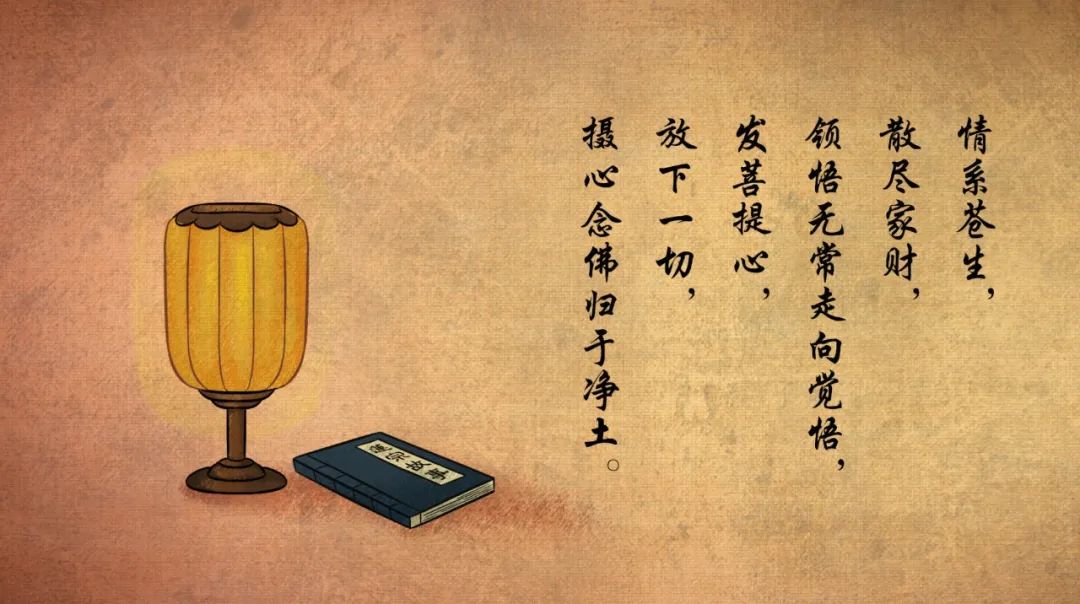 情系苍生，
散尽家财，
领悟无常走向觉悟，
发菩提心，
放下一切，
摄心念佛归于净土。
宗故事